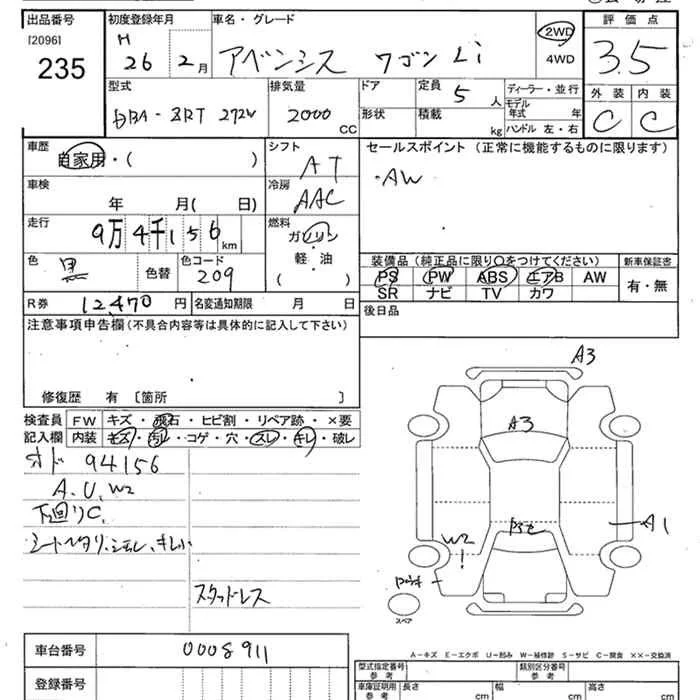 出品番号 初度登録年月 車名・グレード 評価点
[2096]
235
H 26年 2月
アベンシス ワゴン Li
2WD
4WD
3.5
型式 排気量 ドア 定員 ディーラー・並行 外装 内装
DBA-ZRT272W 2000 CC
5人
形状 積載 kg
モデル年式 年
ハンドル 左・右
C C
車歴 自家用・( )
シフト AT
セールスポイント(正常に機能するものに限ります)
・AW
車検 年 月( 日)
冷房 AAC
走行 9万4千156km
燃料 ガソリン・軽油 ( )
色 黒 色替 色コード 209
装備品(純正品に限り○をつけてください) 新車保証書
PS PW ABS エアB AW
SR ナビ TV カワ
有・無
R券 12,470円 名変通知期限 月 日
後日品
注意事項申告欄(不具合内容等は具体的に記入して下さい)
修復歴 有 [箇所 ]
検査員記入欄
FW キズ・飛石・ヒビ割・リペア跡・×要
内装 キズ・汚レ・コゲ・穴・スレ・キレ・破レ
オド 94156
A.U.W2
下廻りC.
スタッドレス
A3
A3
A1
W2
スペア
A-キズ E-エクボ U-凹み W-補修跡 S-サビ C-腐食 ××-交換済
車台番号 0008911
登録番号
型式指定番号 参考 類別区分番号 参考
車庫証明用 参考 長さ cm 幅 cm 高さ cm